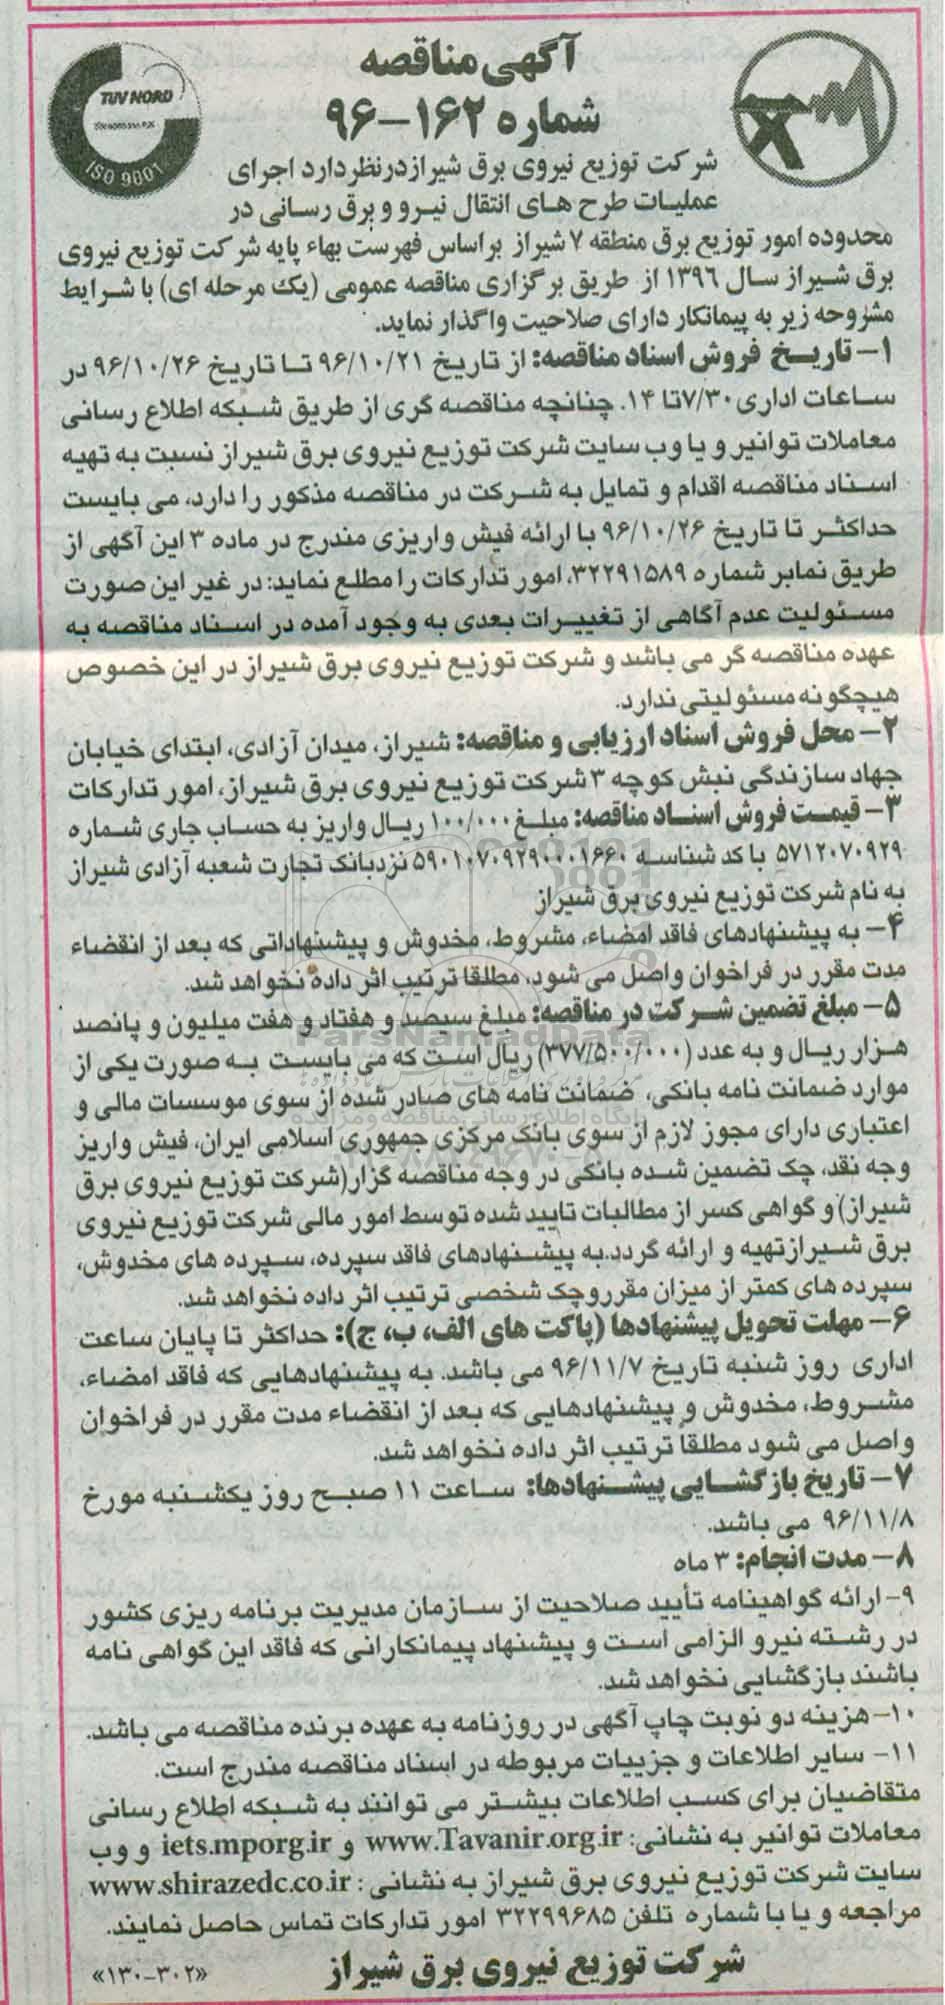 آگهی مناقصه
شماره ۱۶۲-۹۶
TUV NORD
ISO 9001
شرکت توزیع نیروی برق شیرازدرنظردارد اجرای
عملیات طرح های انتقال نیرو و برق رسانی در
محدوده امور توزیع برق منطقه ۷ شیراز براساس فهرست بهاء پایه شرکت توزیع نیروی
برق شیراز سال ۱۳۹۶ از طریق برگزاری مناقصه عمومی (یک مرحله ای) با شرایط
مشروحه زیر به پیمانکار دارای صلاحیت واگذار نماید.
۱- تاریخ فروش اسناد مناقصه: از تاریخ ۹۶/۱۰/۲۱ تا تاریخ ۹۶/۱۰/۲۶ در
ساعات اداری ۷/۳۰تا ۱۴. چنانچه مناقصه گری از طریق شبکه اطلاع رسانی
معاملات توانیر و یا وب سایت شرکت توزیع نیروی برق شیراز نسبت به تهیه
اسناد مناقصه اقدام و تمایل به شرکت در مناقصه مذکور را دارد، می بایست
حداکثر تا تاریخ ۹۶/۱۰/۲۶ با ارائه فیش واریزی مندرج در ماده ۳ این آگهی از
طریق نمابر شماره ۳۲۲۹۱۵۸۹، امور تدارکات را مطلع نماید: در غیر این صورت
مسئولیت عدم آگاهی از تغییرات بعدی به وجود آمده در اسناد مناقصه به
عهده مناقصه گر می باشد و شرکت توزیع نیروی برق شیراز در این خصوص
هیچگونه مسئولیتی ندارد.
۲- محل فروش اسناد ارزیابی و مناقصه: شیراز، میدان آزادی، ابتدای خیابان
جهاد سازندگی نبش کوچه ۳ شرکت توزیع نیروی برق شیراز، امور تدارکات
۳- قیمت فروش اسناد مناقصه: مبلغ ۱۰۰/۰۰۰ ریال واریز به حساب جاری شماره
۵۷۱۲۰۷۰۹۲۹ با کد شناسه ۵۹۰۱۰۷۰۹۲۹۰۰۰۱۶۶۰ نزدبانک تجارت شعبه آزادی شیراز
به نام شرکت توزیع نیروی برق شیراز
۴- به پیشنهادهای فاقد امضاء، مشروط، مخدوش و پیشنهاداتی که بعد از انقضاء
مدت مقرر در فراخوان واصل می شود، مطلقا ترتیب اثر داده نخواهد شد.
۵- مبلغ تضمین شرکت در مناقصه: مبلغ سیصد و هفتاد و هفت میلیون و پانصد
ParsNamadData
هزار ریال و به عدد (۳۷۷/۵۰۰/۰۰۰) ریال است که می بایست به صورت یکی از
موارد ضمانت نامه بانکی، ضمانت نامه های صادر شده از سوی موسسات مالی و
پایگاه اطلاع رسانی مناقصه و مزایده
اعتباری دارای مجوز لازم از سوی بانک مرکزی جمهوری اسلامی ایران، فیش واریز
وجه نقد، چک تضمین شده بانکی در وجه مناقصه گزار(شرکت توزیع نیروی برق
شیراز) و گواهی کسر از مطالبات تایید شده توسط امور مالی شرکت توزیع نیروی
برق شیرازتهیه و ارائه گردد.به پیشنهادهای فاقد سپرده، سپرده های مخدوش،
سپرده های کمتر از میزان مقرروچک شخصی ترتیب اثر داده نخواهد شد.
۶- مهلت تحویل پیشنهادها (پاکت های الف، ب، ج): حداکثر تا پایان ساعت
اداری روز شنبه تاریخ ۹۶/۱۱/۷ می باشد. به پیشنهادهایی که فاقد امضاء،
مشروط، مخدوش و پیشنهادهایی که بعد از انقضاء مدت مقرر در فراخوان
واصل می شود مطلقا ترتیب اثر داده نخواهد شد.
۷- تاریخ بازگشایی پیشنهادها: ساعت ۱۱ صبح روز یکشنبه مورخ
۹۶/۱۱/۸ می باشد.
۸- مدت انجام: ۳ ماه
۹- ارائه گواهینامه تأیید صلاحیت از سازمان مدیریت برنامه ریزی کشور
در رشته نیرو الزامی است و پیشنهاد پیمانکارانی که فاقد این گواهی نامه
باشند بازگشایی نخواهد شد.
۱۰- هزینه دو نوبت چاپ آگهی در روزنامه به عهده برنده مناقصه می باشد.
۱۱- سایر اطلاعات و جزییات مربوطه در اسناد مناقصه مندرج است.
متقاضیان برای کسب اطلاعات بیشتر می توانند به شبکه اطلاع رسانی
معاملات توانیر به نشانی: www.Tavanir.org.ir و iets.mporg.ir و وب
سایت شرکت توزیع نیروی برق شیراز به نشانی : www.shirazedc.co.ir
مراجعه و یا با شماره تلفن ۳۲۲۹۹۶۸۵ امور تدارکات تماس حاصل نمایند.
شرکت توزیع نیروی برق شیراز
«۱۳۰-۳۰۲»